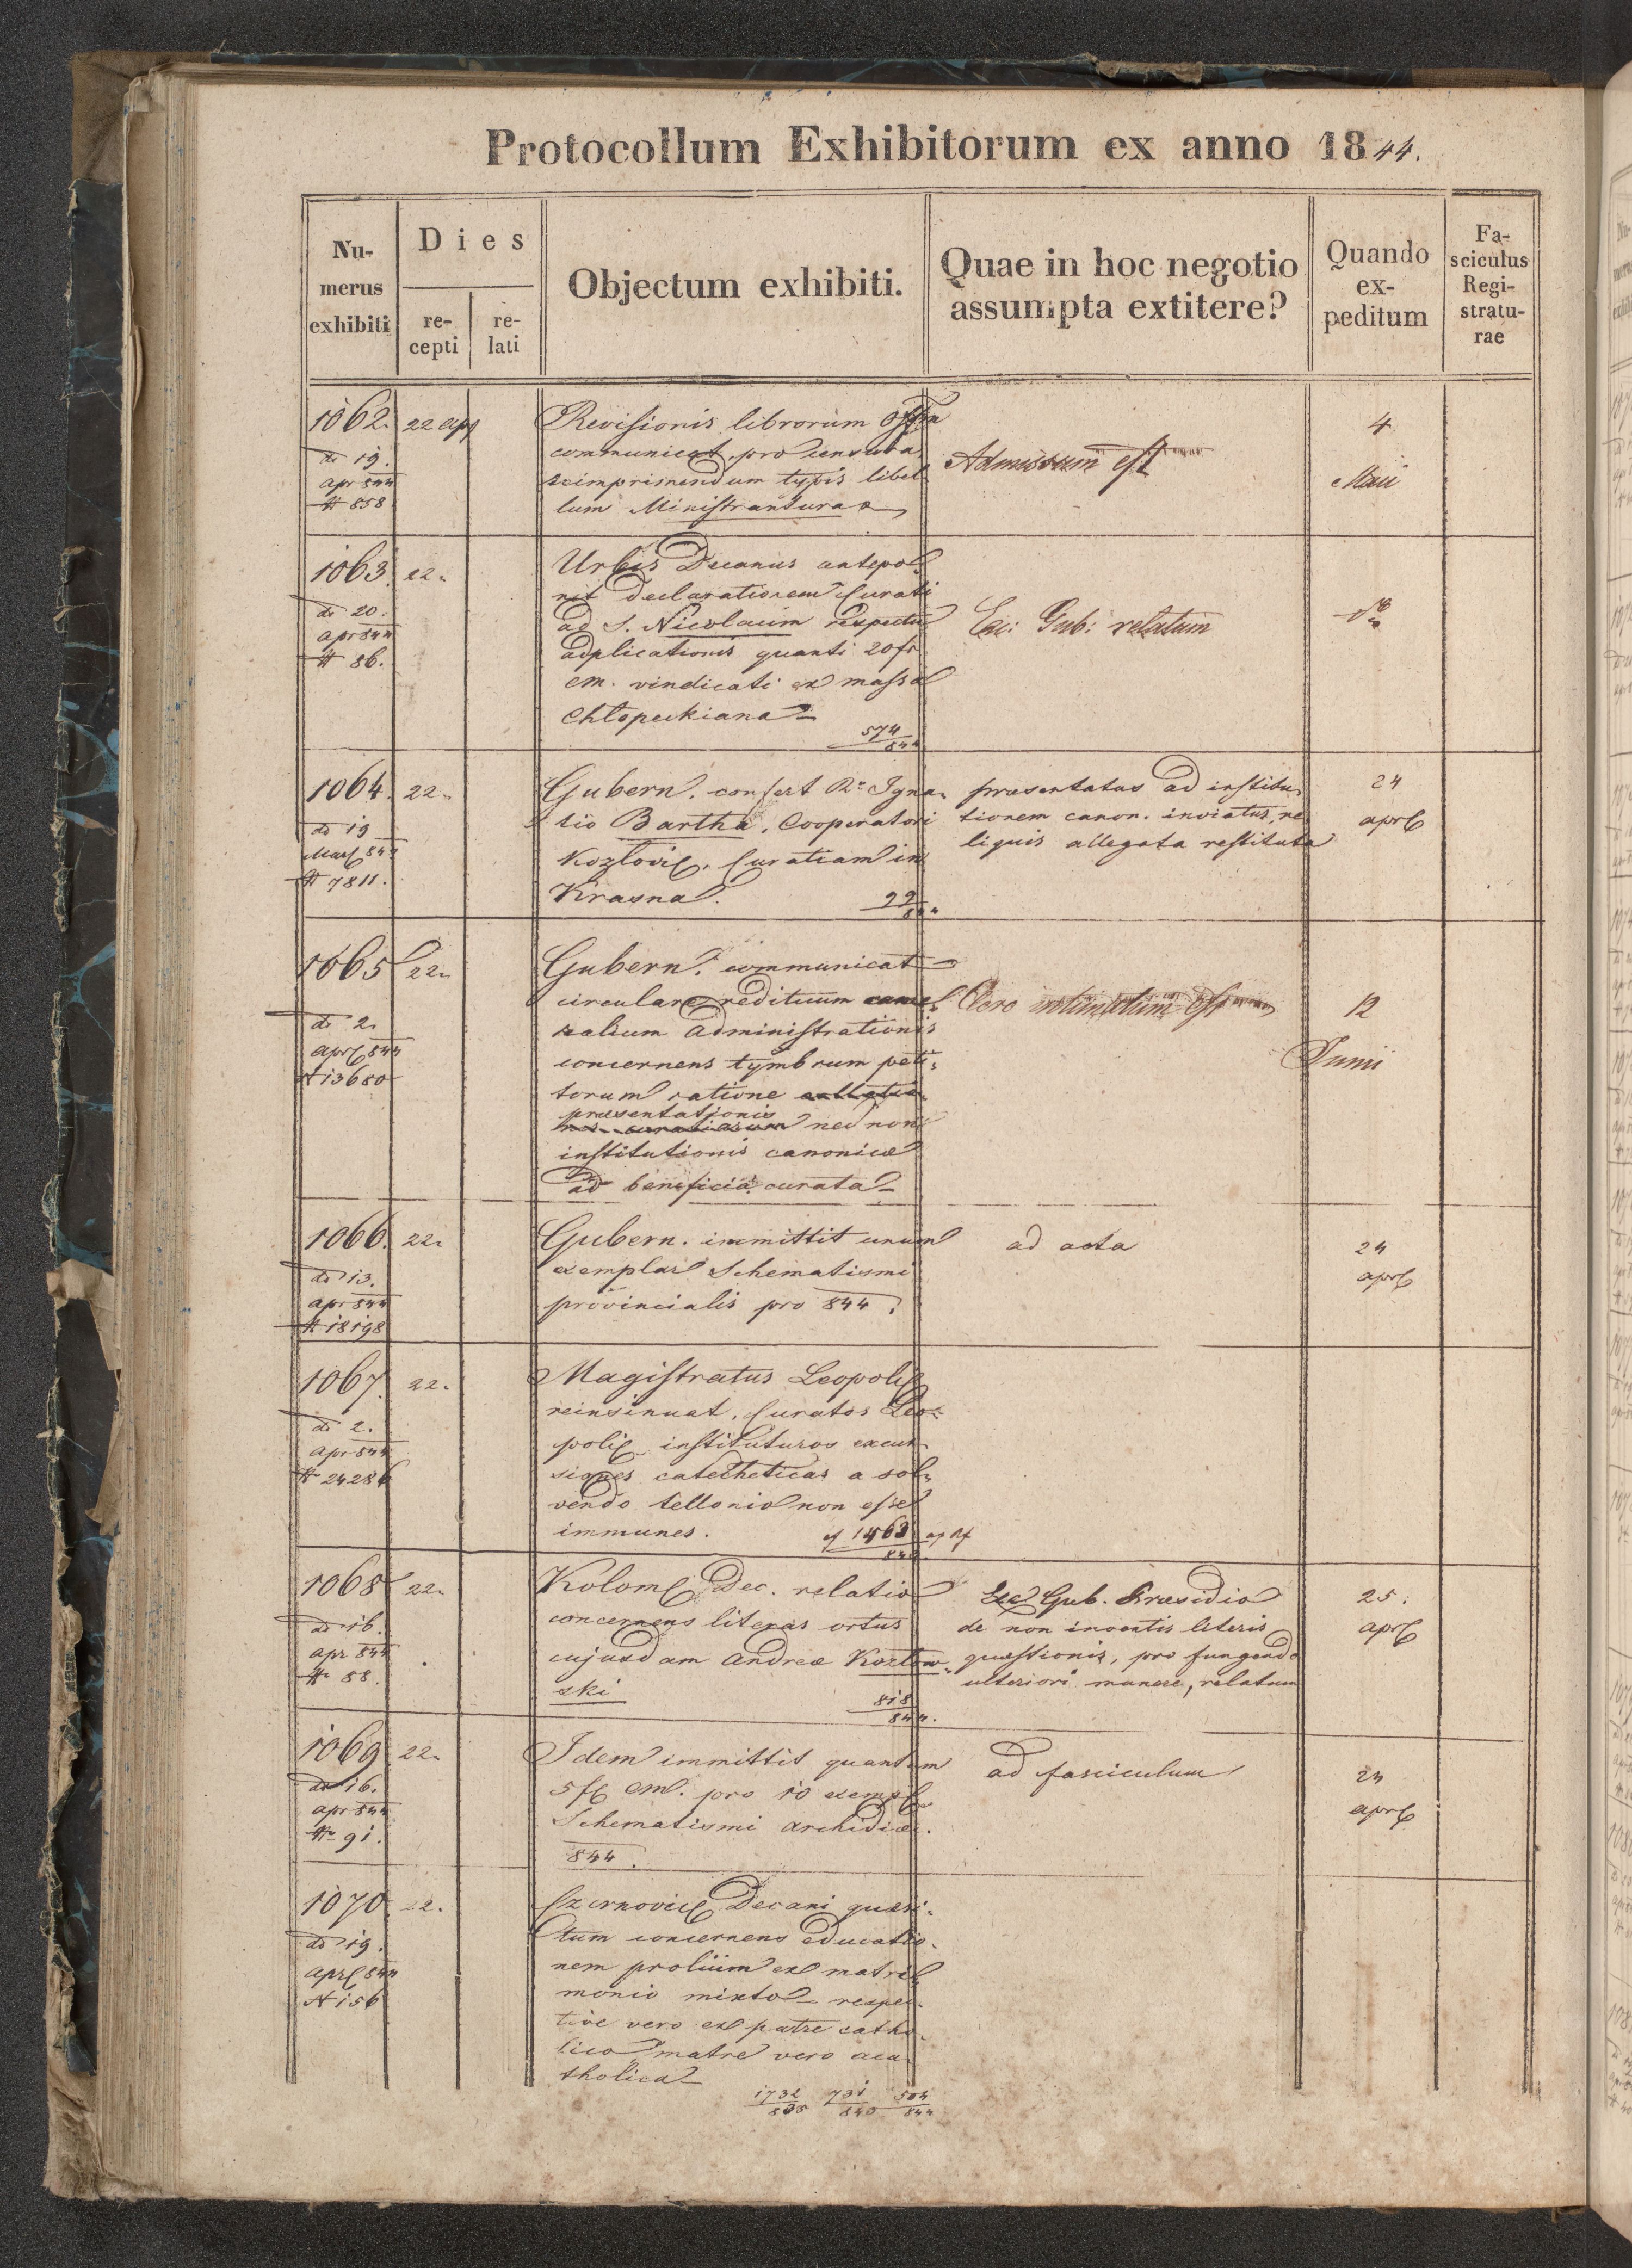 Protocollum Exhibitorum ex anno 1844.
Nu-
merus
exhibiti
Dies
re-
cepti
re-
lati
Objectum exhibiti.
Quae in hoc negotio
assumpta extitere?
Quando
ex-
peditum
Fa-
sciculus
Regi-
stratu-
rae
1062. 22 apr
do 19.
apr 844
# 858
Revisionis librorum
communicat pro censura
reimprimendum typis libel-
lum Ministrantura
Admissum est
4
Maii
1063. 22.
do 20.
apr 844
# 86.
Urbis Decanus antepo-
nit declarationem Curati
ad S. Nicolaum respectu
adplicationis quanti 20 fr
cm. vindicati ex massa
Chłopeckiana
574
844
Exc: Gub: relatum
1064. 22.
do 19
Mar 844
# 7811.
Gubern. confert Rdo Igna-
tio Bartha, Cooperatori
Kozlovie. Curatiam in
Krasna. 99
praesentatus ad institu-
tionem canon. inviatus, re-
liquis allegata restituta
24
apr
1065 22.
do 2.
apr 844
N 13680
Gubern. communicat
circulare redituum came-
ralium administrationis
concernens tymbrum peti-
torum ratione
praesentationis
nec non
institutionis canonicae
ad beneficia curata
Clero intimatum est
12
Junii
1066. 22.
do 13.
apr 844
# 18198
Gubern. immittit unum
exemplar Schematismi
provincialis pro 844.
ad acta
24
apr
1067. 22.
do 2.
apr 844
# 24286
Magistratus Leopol
reinsinuat, Curatos Leo-
pol instituturos excur-
siones catecheticas a sol-
vendo tellonio non esse
immunes. 1463
1068 22.
do 16.
apr 844
N 88.
Kolom Dec. relatio
concernens literas ortus
cujusdam Andreae Kozłow-
ski
818
844.
Exc Gub. Praesidio
de non inventis literis
quaestionis, pro fungendo
ulteriori munere, relatum
25.
apr
1069 22.
do 16.
apr 844
N 91.
Idem immittit quantum
5 f cm. pro 10 exempl
Schematismi archidioe.
844.
ad fasciculum
24
apr
1070 22.
do 19.
apr 844
N 156
Czernovic Decani quaesi-
tum concernens educatio-
nem prolium ex matri-
monio mixto respec-
tive vero ex patre catho-
lico matre vero aca-
tholica
1732 731 504
835 840 844